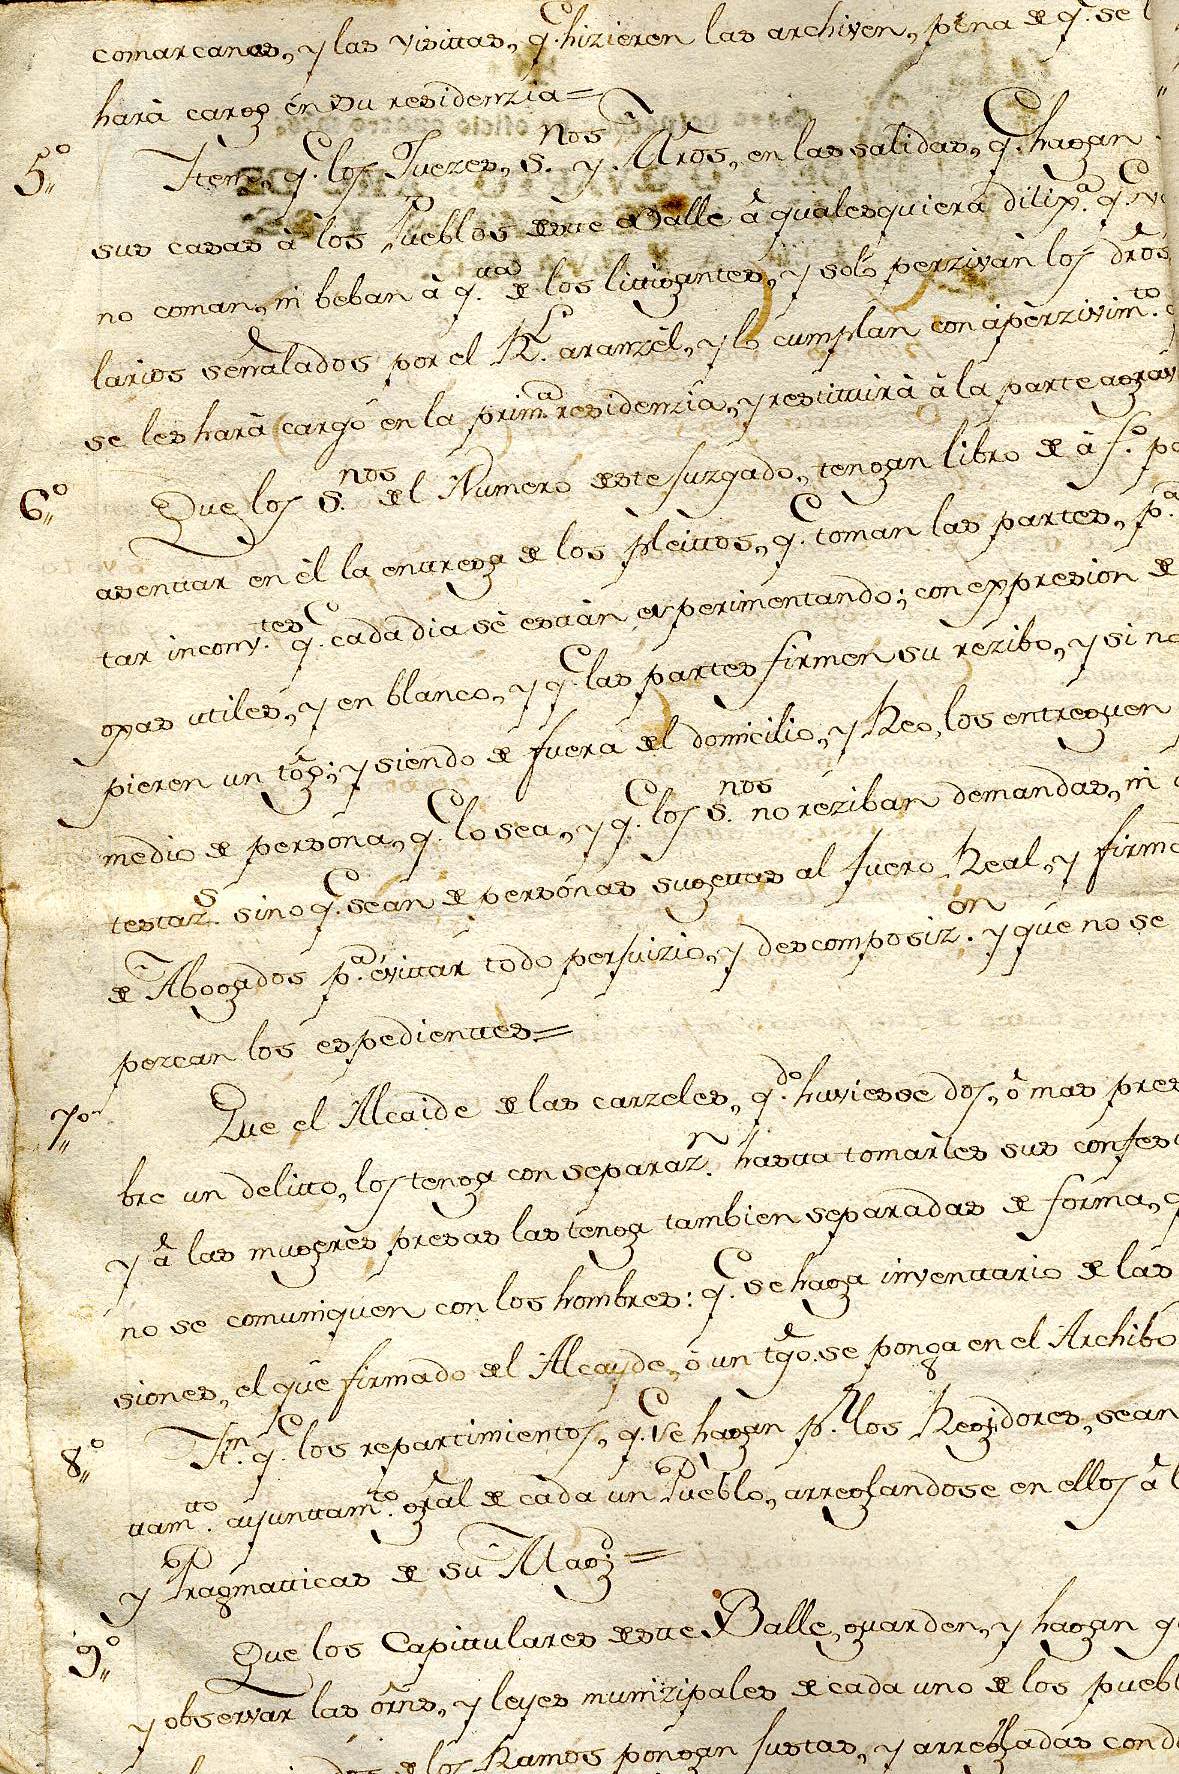 comarcanas, y las visittas, q.e hizieren las archiven, pena de q.e se l
harà cargo en su residenzia=
5.º Item, q.e los Juezes, s.nos y Mros, en las salidas, q.e hagan
sus casas à los Pueblos deste Balle à qualesquiera dilix.a q.e
no coman, ni beban à q.tta de los littigantes, y solo perzivàn los dros,
larios señalados por el R.l aranzèl, y lo cumplan con àperzivim.to
se les harà cargo en la prim.a residenzia, y restituirà à la parte agrav
6.º Que los s.nos del Numero deste Juzgado, tengan libro de à f.º pa
asentar en èl la entrega de los pleittos, q.e toman las partes, p.a
tar inconv.tes q.e cada dia se estàn experimentando; con expresion de
oxas utiles, y en blanco, y q.e las partes firmen su rezibo, y si no
pieren un tgo; y siendo de fuera del domicilio, y Reo, los entreguen
medio de persona, q.e lo sea, y q.e los s.nos no reziban demandas, ni
testaz.s sino q.e sean de personas sugettas al fuero Real, y firm
de Abogados p.a evittar todo perjuizio, y descomposiz.on y que no se
perzcan los espedienttes=
7.º Que el Alcaide de las carzeles, q.do huviesse dos, ò mas pres
bre un delitto, los tenga con separaz.n hasta tomarles sus confes
y à las mugeres presas las tenga tambien separadas de forma, q
no se comuniquen con los hombres: q.e se haga inventtario de las
siones, el que firmado del Alcayde, ò un tgo. se ponga en el Archibo
8.º Itt.n q.e los repartimientos, q.e se hagan p.r los Regidores, sean
ttam.tto ayunttam.to gral de cada un Pueblo, arreglandose en ellos à l
y Pragmatticas de su Mag.d=
9.º Que los Capittulares deste Balle, guarden, y hagan g
y observar las orns, y leyes munizipales de cada uno de los puebl
los Ramos pongan justas, y arregladas con d